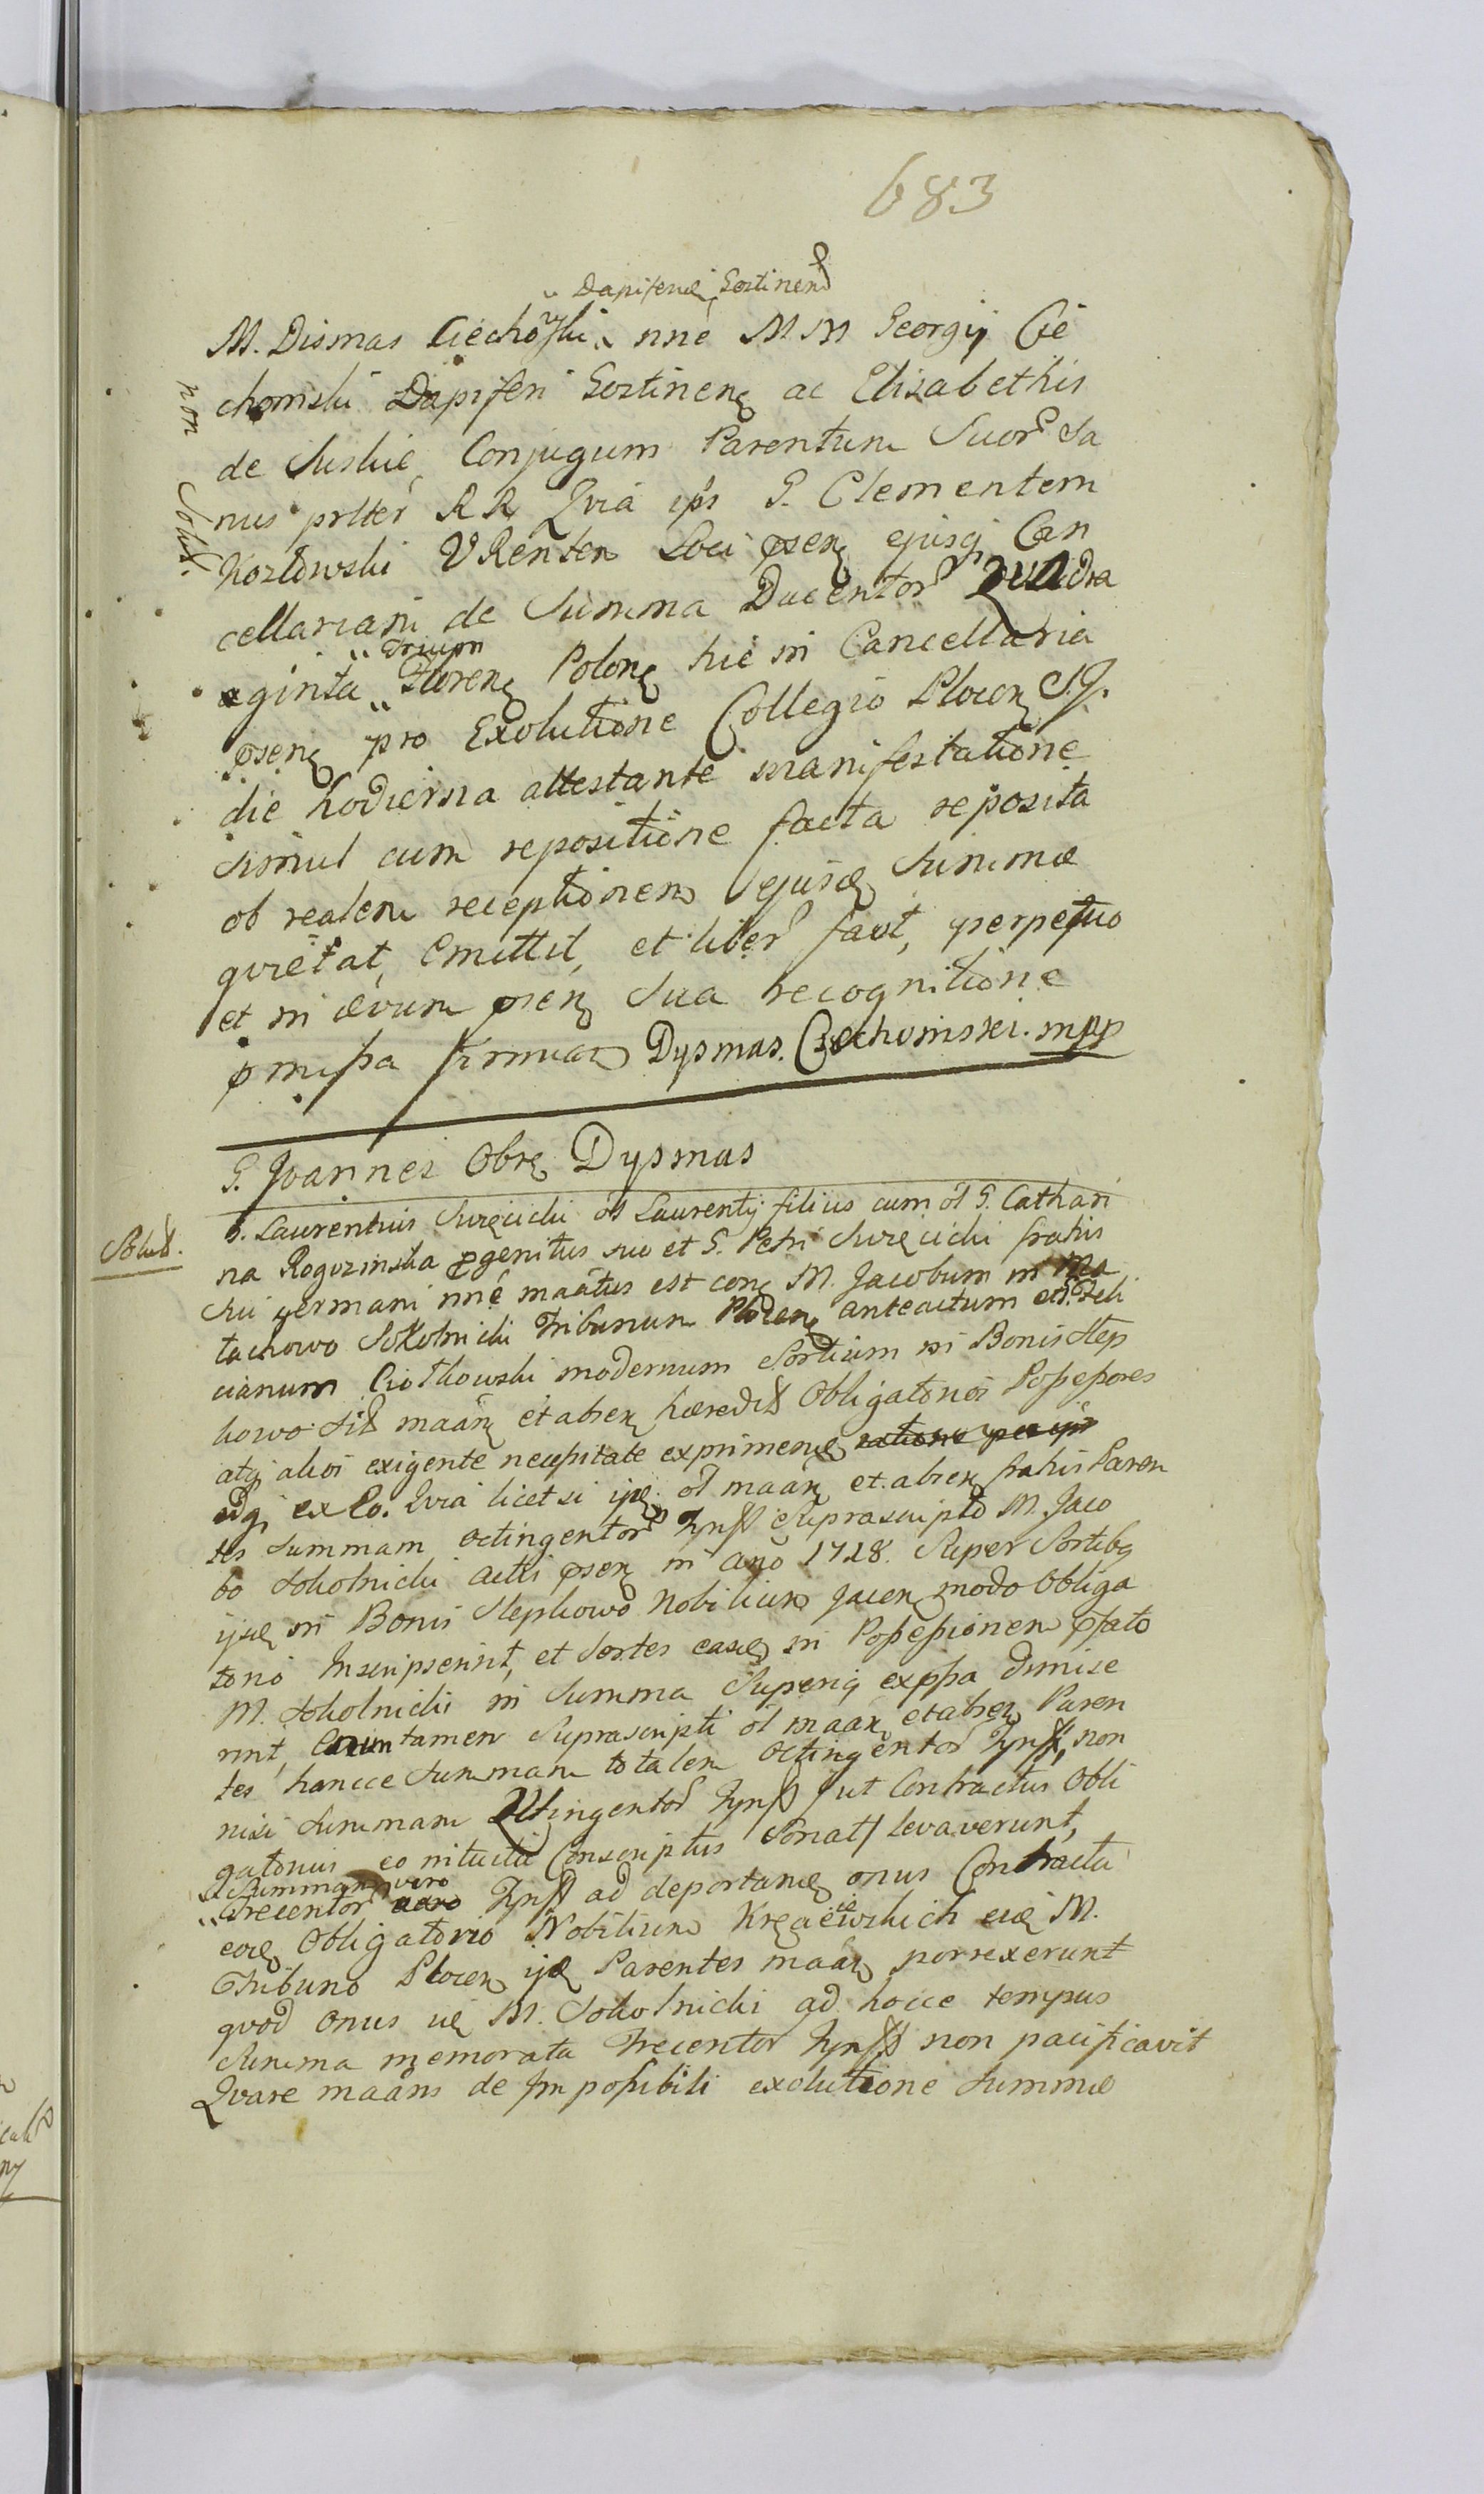 683
Dapiferid Gostinen
M. Dismas Ciechomski nne M M Georgij Cie
chomski Dapiferi Gostinen ac Elisabethis
de Suskie Conjugum Parentum Suor Sa
nus prtter RR Qvia ips G. Clementem
Kozłowski VRenten Loci psen ejusq Can
cellariam de Summa Ducentor Quadra
ginta Trium Floren Polon hic in Cancellaria
psen pro Exolutione Collegio Plocen S.J.
die hodierna attestante manifestatione
simul cum repositione facta reposita
ob realem receptionem ejusd Summæ
qvietat, Emittit, et liber facit, perpetuo
et in ævum psen Sua recognitione
pmissa firmcan Dysmas. Ciechomski. mpp
non Solut.
G. Joannes Obre Dysmas
Solut.
G. Laurentius Suręcicki ol Laurentij filius cum ol G. Cathari
na Rogozinska pgenitus suo et G. Petri Suręcicki fratris
Sui germani nne maatus est con M. Jacobum in Ma
tachowo Sokolnicki Tribunum Plocen anteactum et G. Feli
cianum Ciołkowski modernum Sortium in Bonis Step
kowo sit maan et absen hæredit Obligatorios Possessores
atq alios exigente necessitate exprimend ratione per ips
idq ex Eo. Qvia licet si ijd ol maan et absen fratris Paren
tes Summam octingentor Tynff Suprascripto M. Jaco
bo Sokolnicki actis psen in ano 1728. Super Sortibq
ijsd in Bonis Stepkowo Nobilium Jacen modo Obliga
torio Inscripserint, et Sortes easd in Possessionem pfato
M. Sokolnicki in Summa Superiq expssa dimise
rint, Attamen Suprascripti ol maan et absen Paren
tes hancce Summam totalem Octingentor Tynff, non
nisi Summam Qvtingentor Tynff ut Contractus Obli
gatorius eo intuitu Conscriptus Sonat levaverunt,
Summam vero
Trecentor Tynff ad deportand onus Contractu
eod Obligatorio Nobilium Kręcieiewskich eid M.
Tribuno Plocen ijd Parentes maan porrexerunt
qvod Onus id M. Sokolnicki ad hocce tempus
Summa memorata Trecentor Tynff non pacificavit
Qvare maans de Impossibili exolutione Summæ